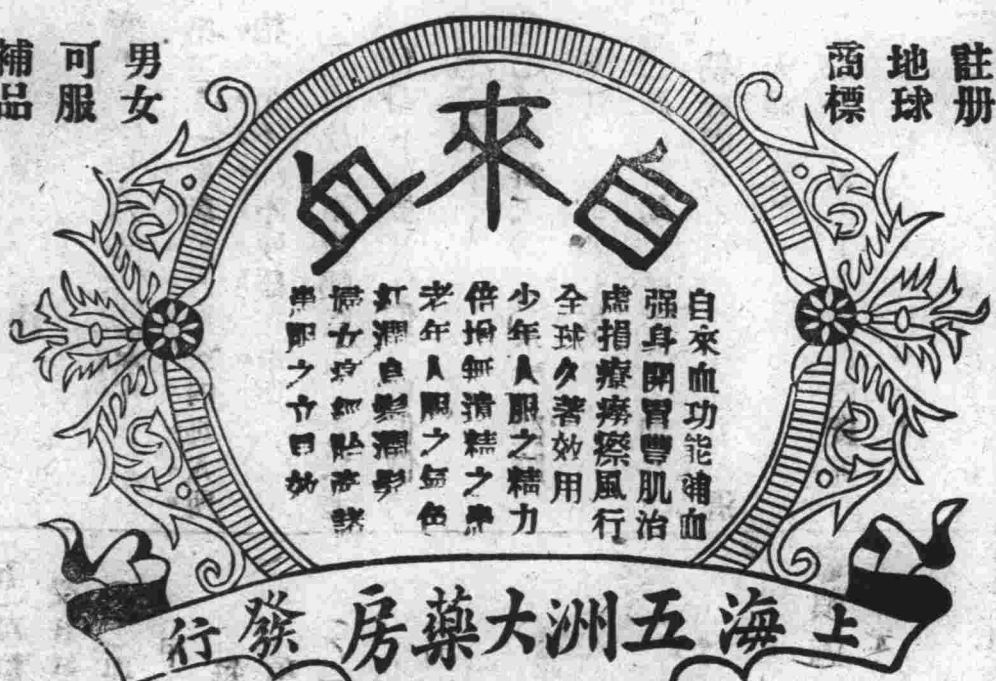 註册
地球
商標
男女
可服
補品
自來血
自來血功能補血
强身開胃豐肌治
虛損療癆瘵風行
全球久著效用
少年人服之精力
倍增無遺精之患
老年人服之氣色
紅潤
婦女
服之立見效
上海五洲大藥房發行